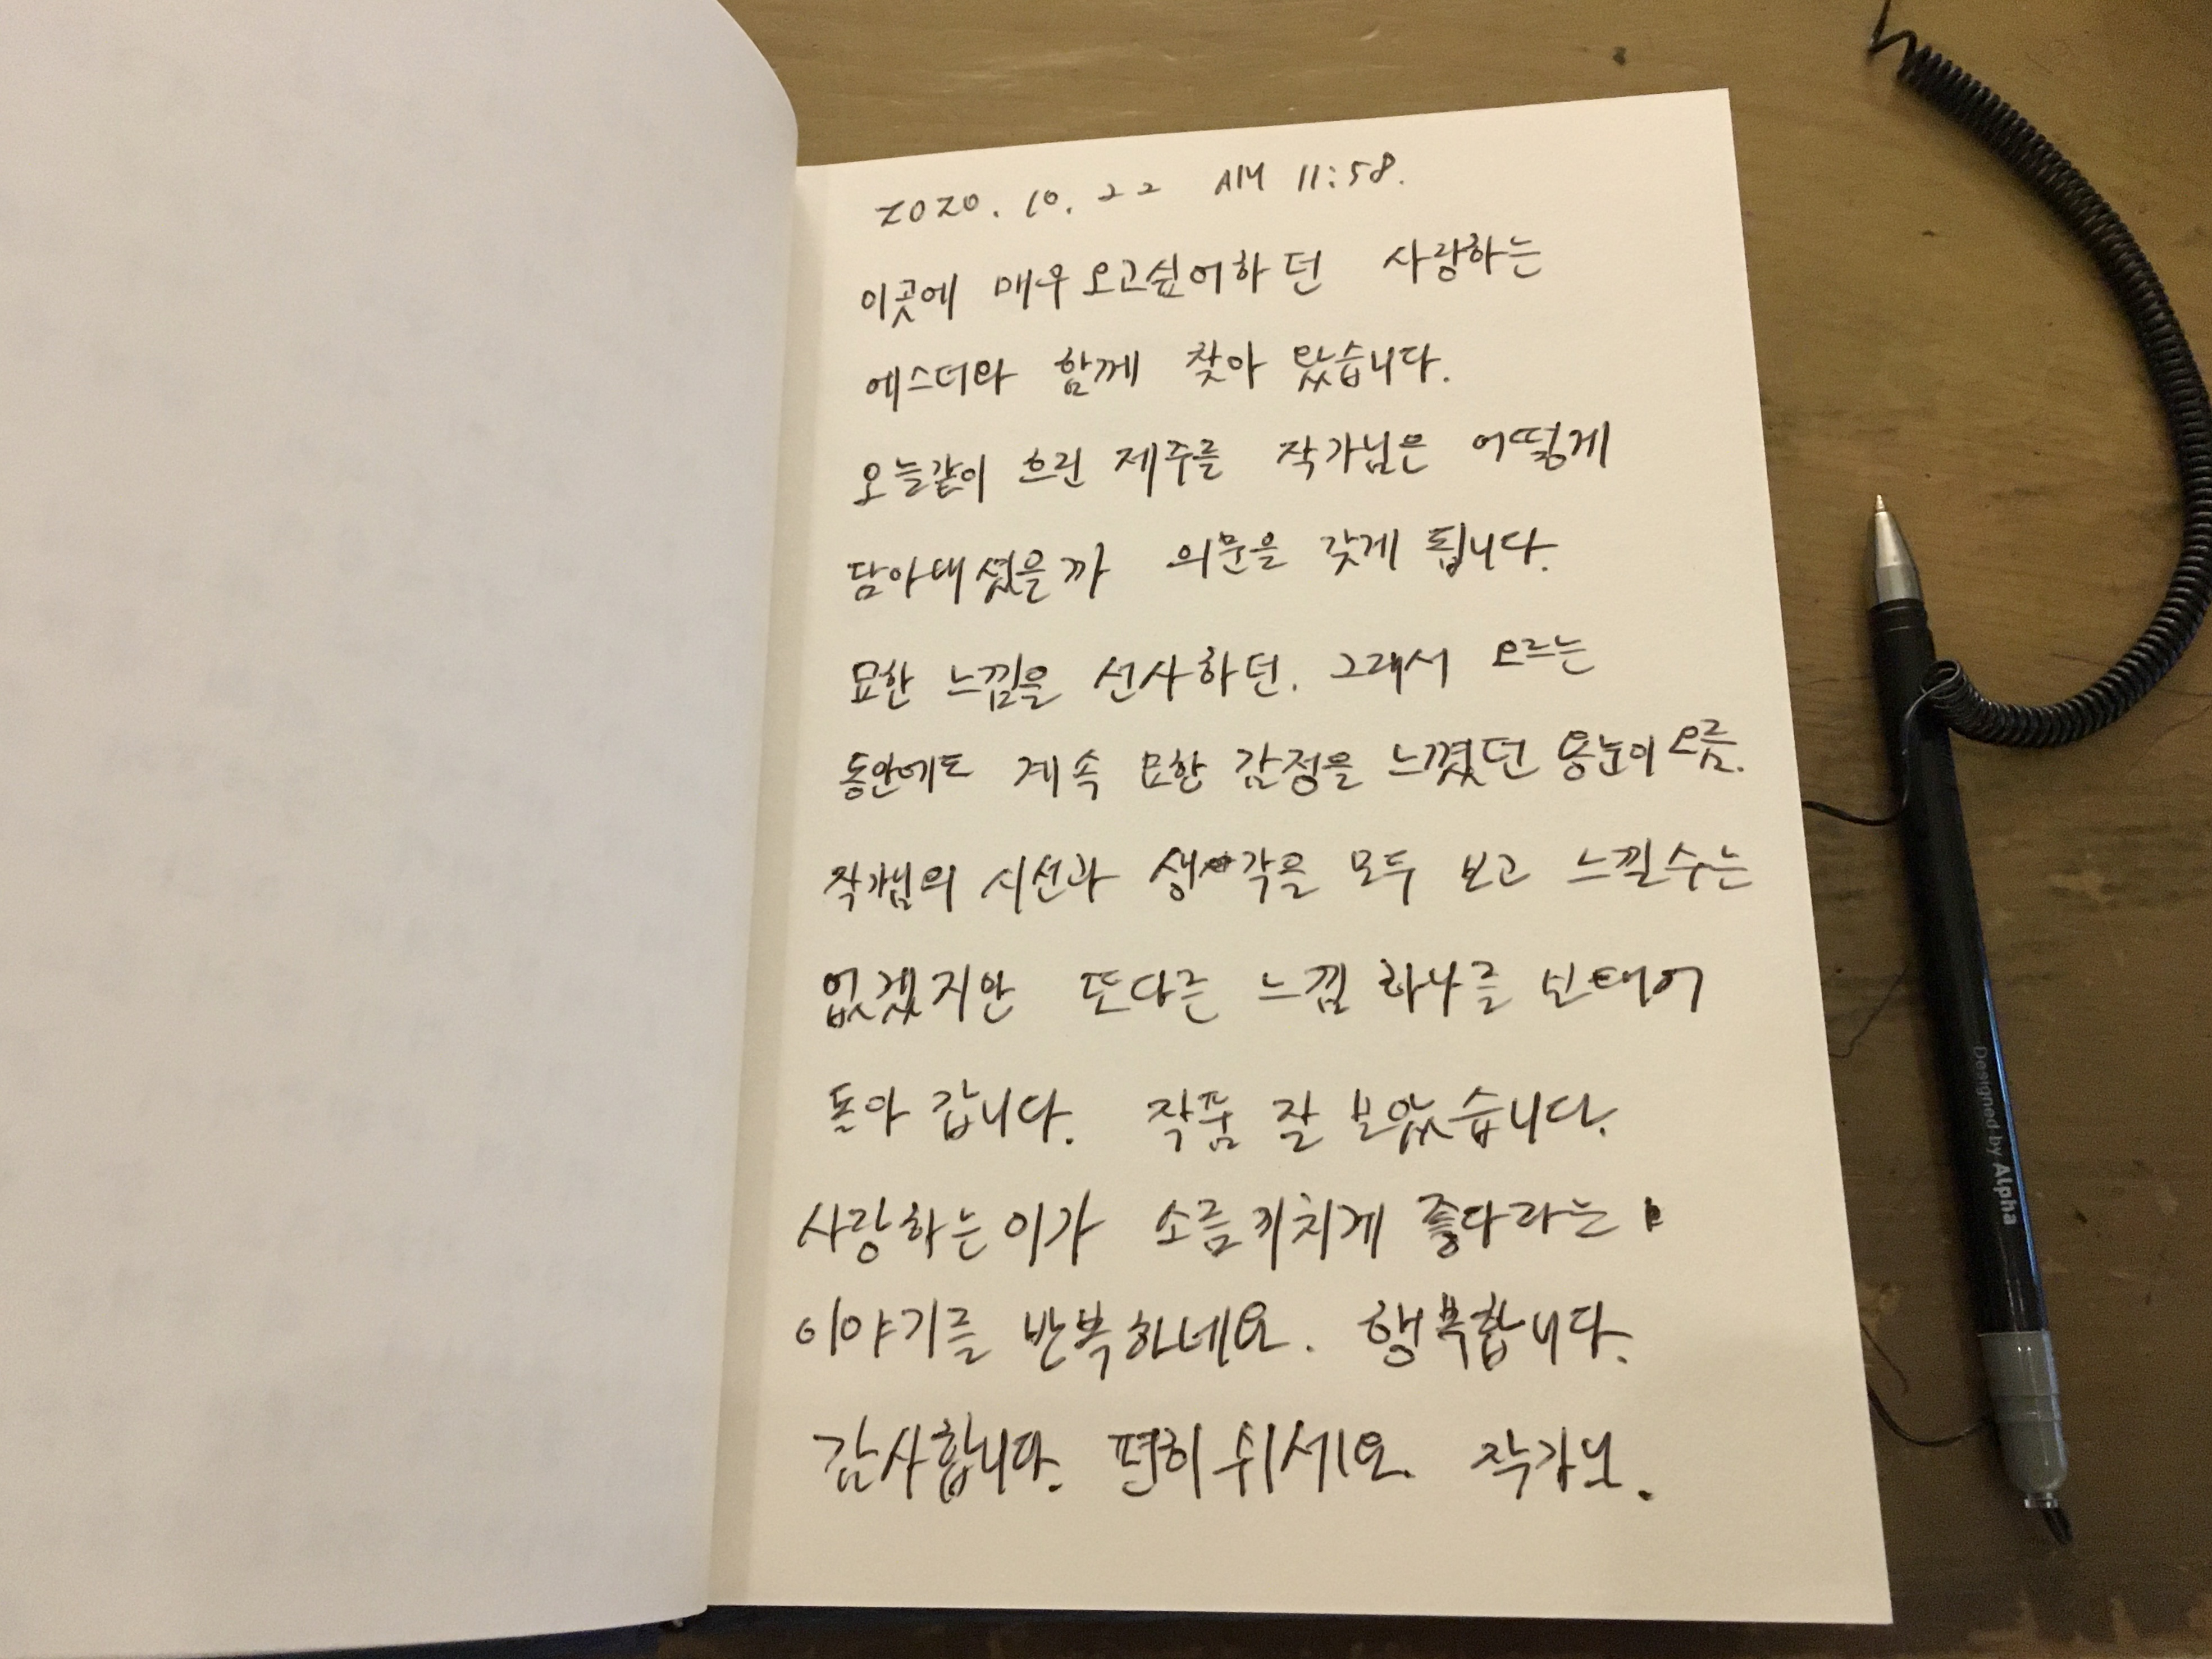 2020. 10. 22 AM 11:58.
이곳에 매우 오고싶어하던 사랑하는
에스더와 함께 찾아 왔습니다.
오늘같이 흐린 제주를 작가님은 어떻게
담아내셨을까 의문을 갖게 됩니다.
묘한 느낌을 선사하던. 그래서 오르는
동안에도 계속 묘한 감정을 느꼈던 용눈이오름.
작가님의 시선과 생각을 모두 보고 느낄수는
없겠지만 또다른 느낌 하나를 보태어
돌아 갑니다. 작품 잘 보았습니다.
사랑하는이가 소름끼치게 좋다라는
이야기를 반복하네요. 행복합니다.
감사합니다. 편히 쉬세요. 작가님.
Designed by Alpha